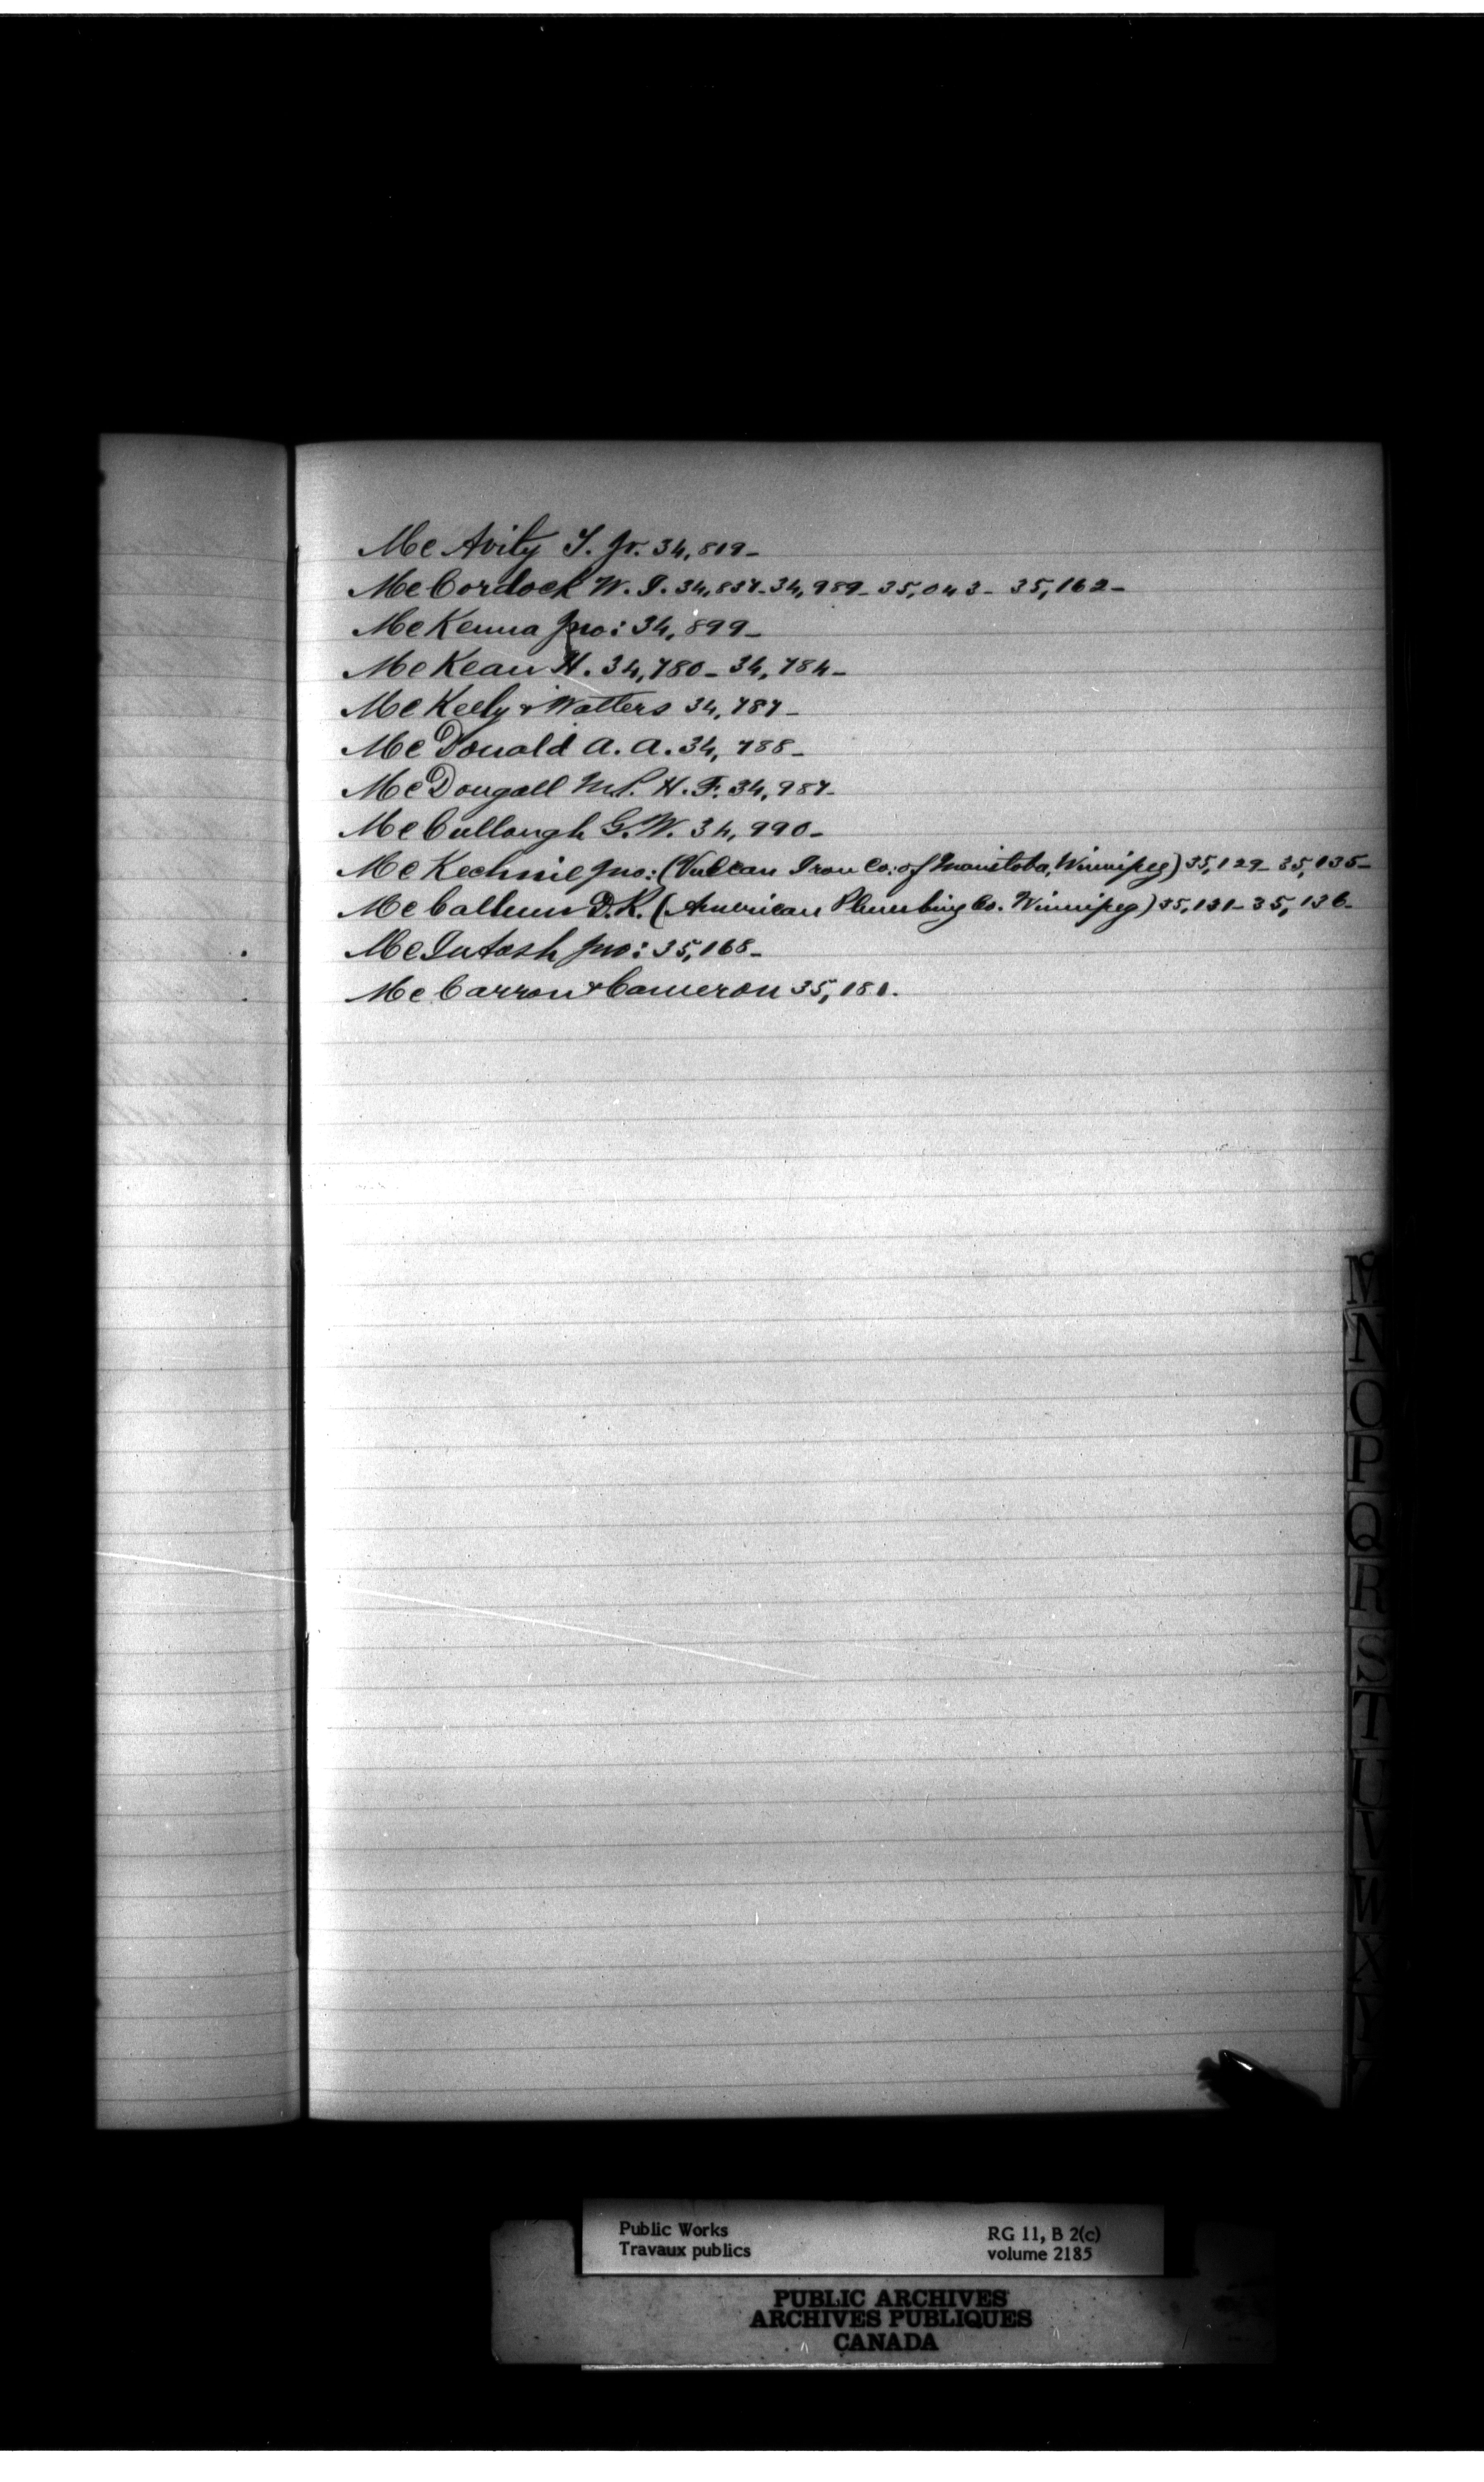 McAvity T. Jr. 34,819-
McCordock W. J. 34,837-34,989-35,043-35,162-
McKenna Jno: 34,899-
McKean H. 34,780-34,784-
McKeely & Watters 34,787-
McDonald A. A. 34,788-
McDougall H. F. 34,987-
McCullough G. W. 34,990-
McKechnie Jno: (Vulcan Iron Co: of Manitoba, Winnipeg) 35,129-35,135-
McCalhum D. K. (American Plumbing Co. Winnipeg) 35,131-35,136-
McIntosh Jno: 35,168-
McCarron & Cameron 35,181.
M
N
O
P
Q
R
S
T
U
V
W
X
Public Works
Travaux publics
RG 11, B 2(c)
volume 2185
PUBLIC ARCHIVES
ARCHIVES PUBLIQUES
CANADA